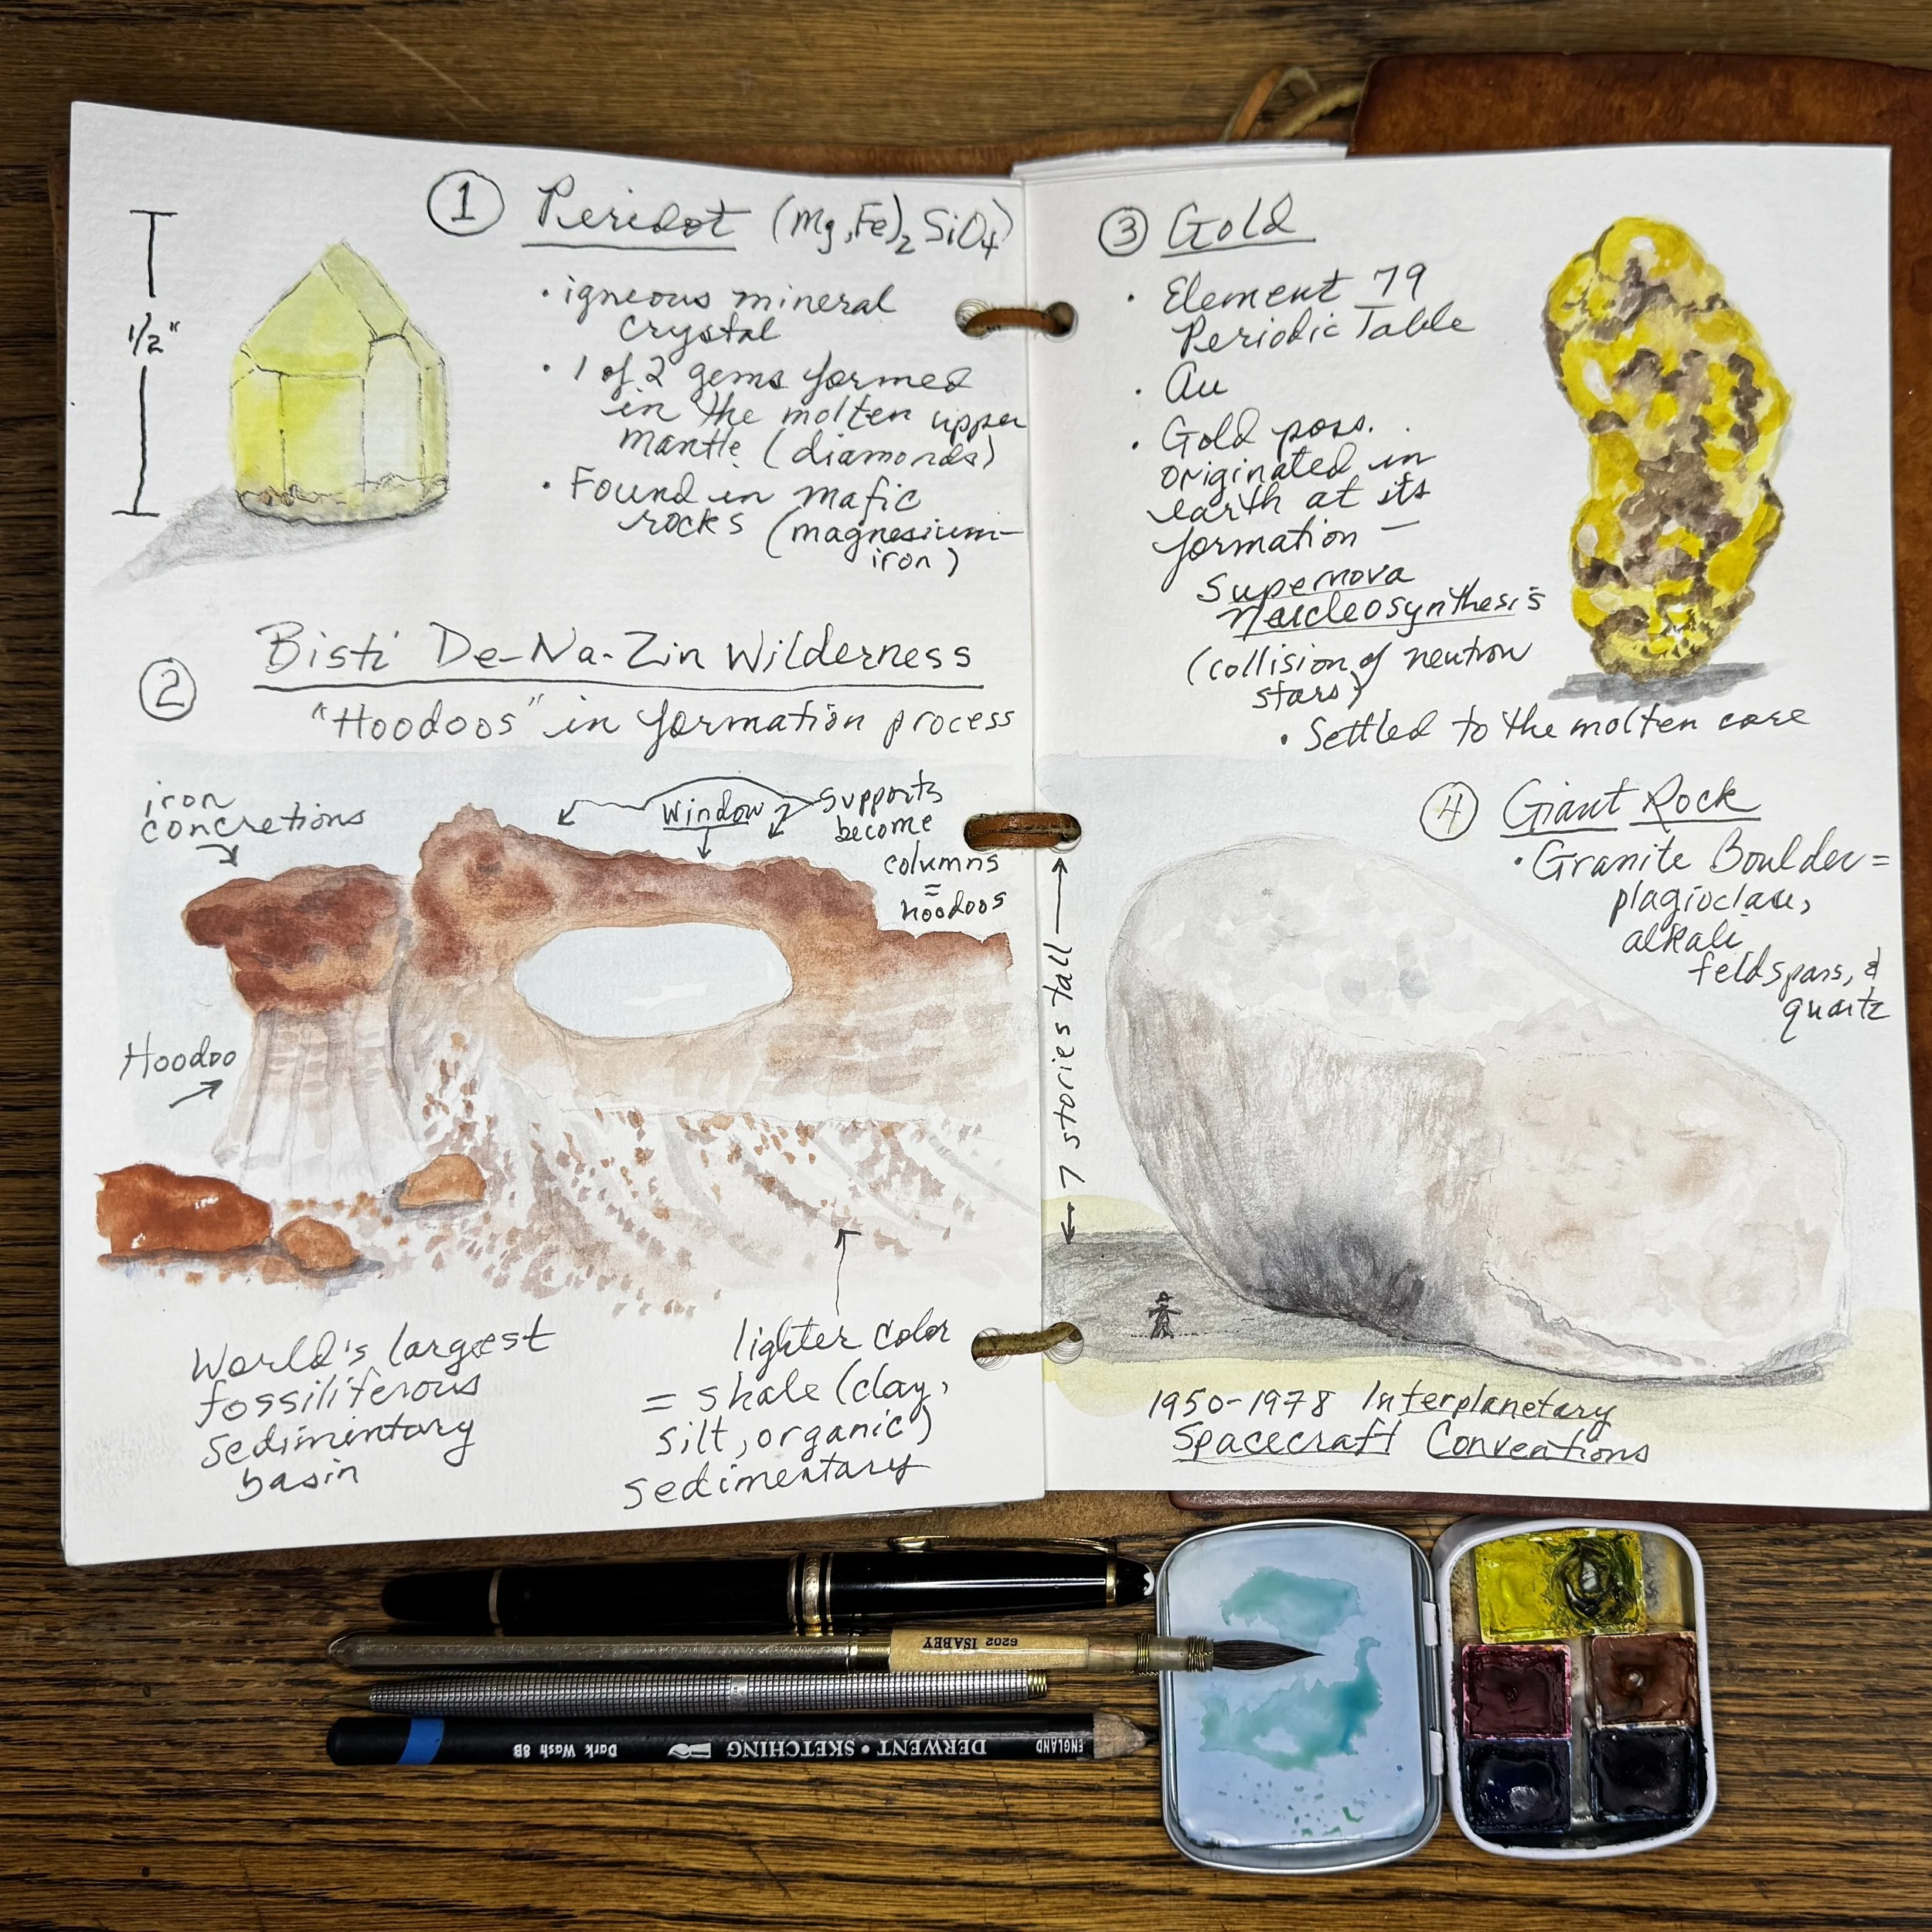 ① Peridot (Mg,Fe)₂ SiO₄
1/2"
• igneous mineral
crystal
• 1 of 2 gems formed
in the molten upper
mantle (diamonds)
• Found in mafic
rocks (magnesium-
iron)
② Bisti De-Na-Zin Wilderness
"Hoodoos" in formation process
iron
concretions
Window
supports
become
columns
=
hoodoos
Hoodoo
World's largest
fossiliferous
sedimentary
basin
lighter color
= shale (clay,
silt, organic)
sedimentary
③ Gold
• Element 79
Periodic Table
• Au
• Gold poss.
originated in
earth at its
formation —
Supernova
Nucleosynthesis
(collision of neutron
stars)
• Settled to the molten core
④ Giant Rock
• Granite Boulder =
plagioclase,
alkali
feldspars, &
quartz
7 stories tall
1950-1978 Interplanetary
Spacecraft Conventions
6202 ISABEY
Dark Wash 8B DERWENT • SKETCHING ENGLAND